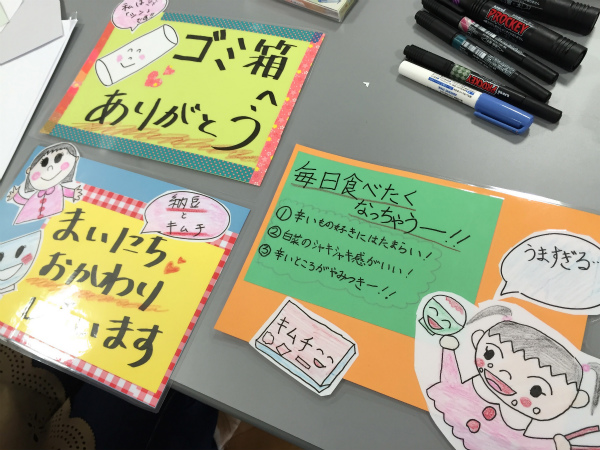 私は
です
ゴミ箱
へ
ありがとう
納豆
と
キムチ
まいにち
おかわり
しています
毎日食べたく
なっちゃうー!!
①辛いもの好きにはたまらない!
②白菜のシャキシャキ感がいい!
③辛いところがやみつきー!!
うますぎる…
キムチ
PROCKEY